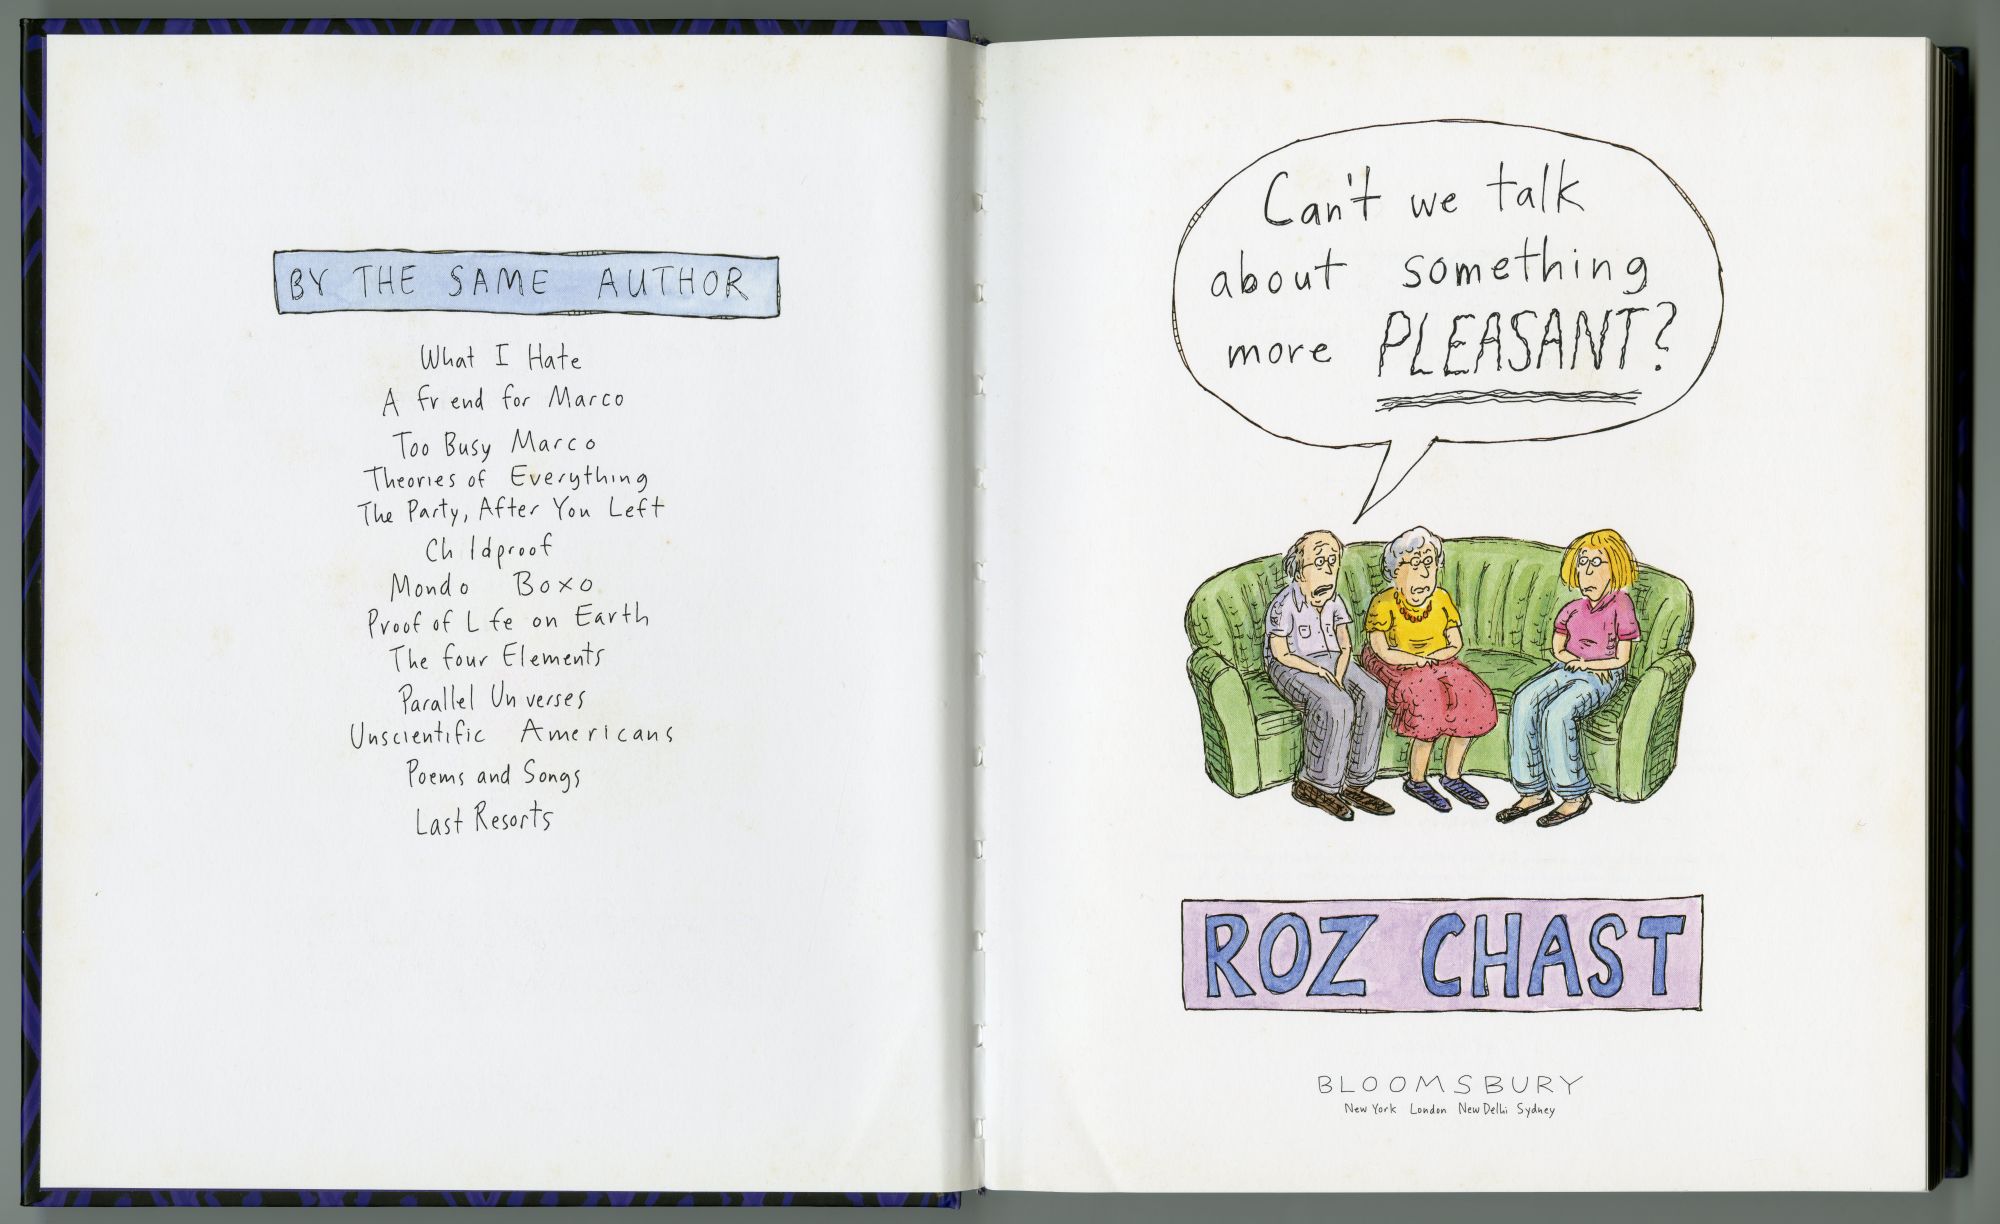 BY THE SAME AUTHOR
What I Hate
A fr end for Marco
Too Busy Marco
Theories of Everything
The Party, After You Left
Ch ldproof
Mondo Boxo
Proof of L fe on Earth
The four Elements
Parallel Un verses
Unscientific Americans
Poems and Songs
Last Resorts
Can't we talk
about something
more PLEASANT?
ROZ CHAST
BLOOMSBURY
New York London New Delhi Sydney